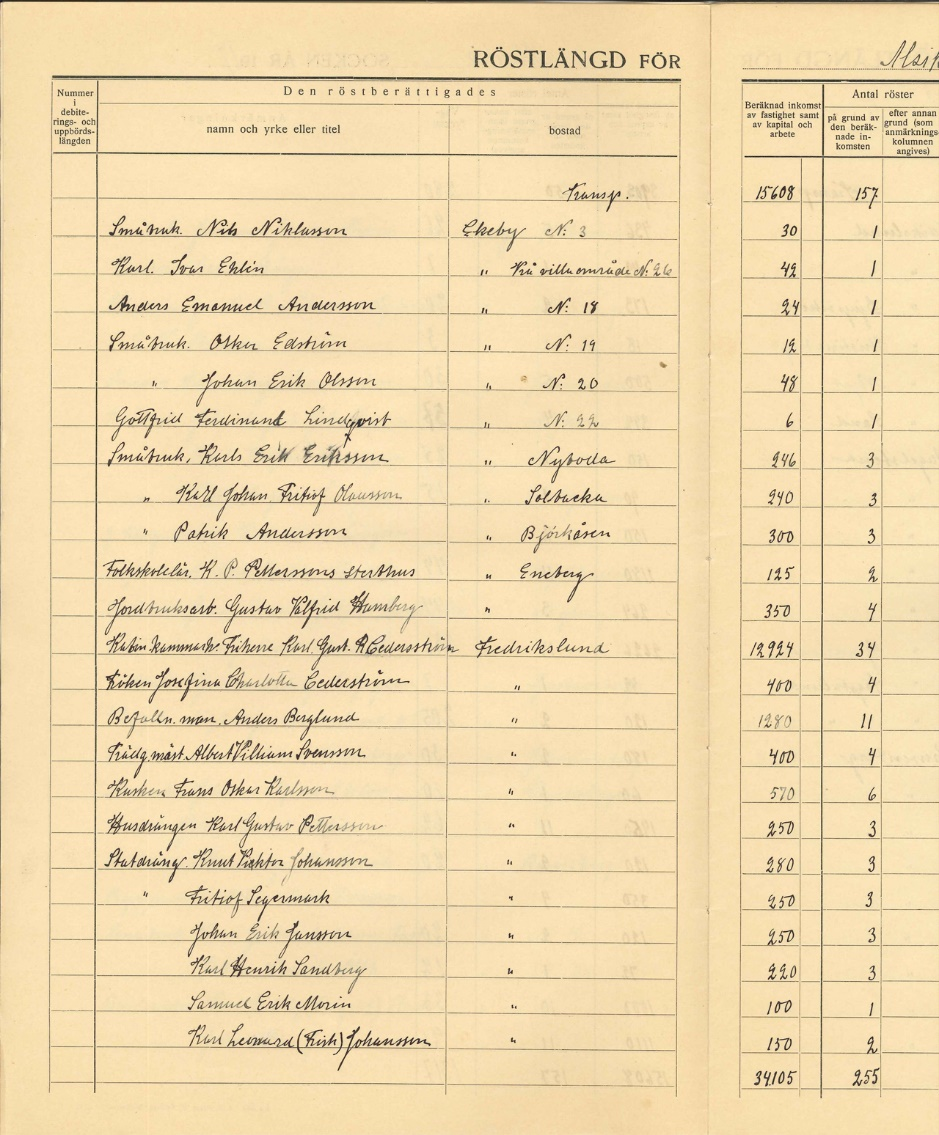 RÖSTLÄNGD FÖR
Nummer i debiterings- och uppbördslängden
Den röstberättigades
namn och yrke eller titel
bostad
Beräknad inkomst av fastighet samt av kapital och arbete
Antal röster
på grund av den beräknade inkomsten
efter annan grund (som anmärkningskolumnen angives)
Transp. 15608 157
Småbruk. Nils Niklasson Ekeby N: 3 30 1
Karl. Ivar Eklin " villaområde N: 26 42 1
Anders Emanuel Andersson " N: 18 24 1
Småbruk. Oskar Edström " N: 19 12 1
" Johan Erik Olsson " N: 20 48 1
Gottfrid Ferdinand Lindqvist " N: 22 6 1
Småbruk. Karls Erik Eriksson " Nyboda 246 3
" Karl Johan Fritiof Olausson " Solbacka 240 3
" Patrik Andersson " Björkåsen 300 3
Folkskolelär. K. P. Petterssons sterbhus " Eneberg 125 2
Jordbruksarb. Gustav Valfrid Hamberg " 350 4
Friherre Karl. Gust. R Cedersström Fredrikslund 12924 34
Fröken Josefina Charlotta Cederström " 400 4
Befalln. man. Anders Berglund " 1280 11
Trädg. mäst. Albert Villiam Svensson " 400 4
Kusken Frans Oskar Karlsson " 570 6
Husdrängen Karl Gustav Pettersson " 250 3
Statdräng. Knut Viktor Johansson " 280 3
" Fritiof Segermark " 250 3
Johan Erik Jansson " 250 3
Karl Henrik Sandberg " 220 3
Samuel Erik Morin " 100 1
Karl Leonard (Frisk) Johansson " 150 2
34105 255